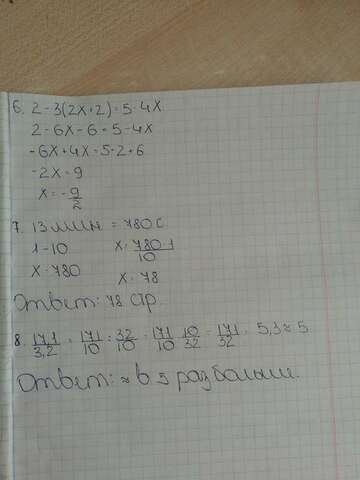 6. 2-3(2x+2)=5-4x
2-6x-6=5-4x
-6x+4x=5-2+6
-2x=9
x=-9/2
7. 13 мин = 780 с
1-10 x=780·1/10
x-780 x=78
Ответ: 78 стр.
8. 17,1/3,2 = 171/10 : 32/10 = 171/10 · 10/32 = 171/32 = 5,3≈5
Ответ: ≈ в 5 раз больше.